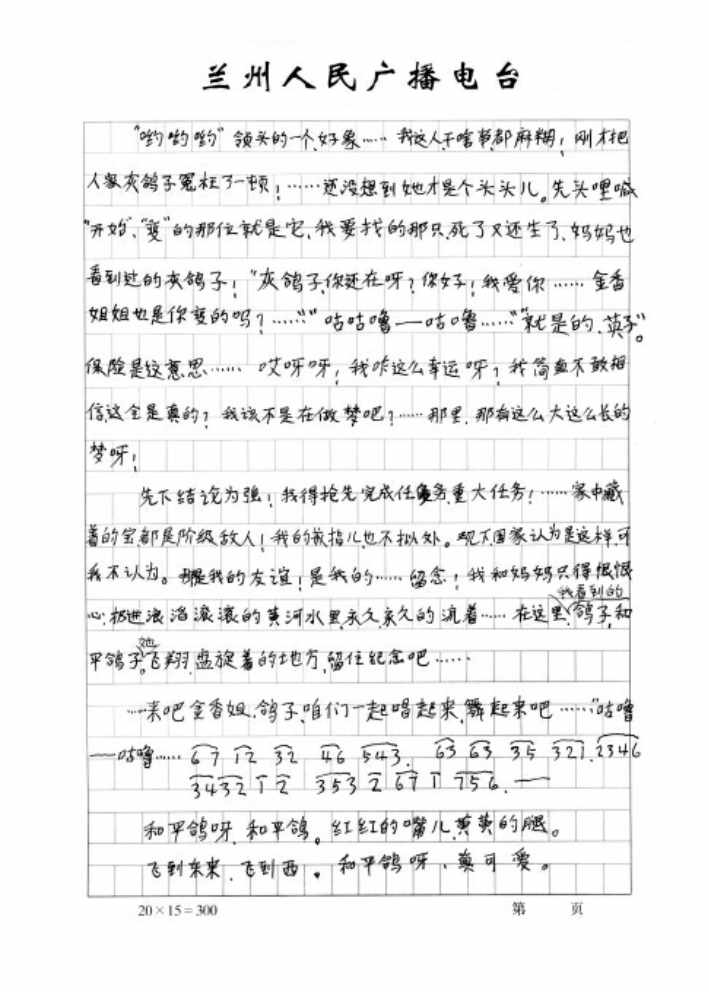 兰州人民广播电台
"哟哟哟"领头的一个,好象……我这人干啥事都麻糊！刚才把
人家灰鸽子冤枉了一顿！……还没想到她才是个头头儿。先头哩喊
"开始"、"变"的那位就是它,我要找的那只,死了又还生了、妈妈也
看到过的灰鸽子！"灰鸽子,你还在呀？你好！我爱你……金香
姐姐也是你变的吗？……""咕咕噜——咕噜……""就是的、英子"。
保险是这意思…… 哎呀呀！我咋这么幸运呀？我简直不敢相
信这全是真的？我该不是在做梦吧？……那里、那有这么大这么长的
梦呀！
先下结论为强！我得抢先完成任务重大任务！……家中藏
着的宝都是阶级敌人！我的戒指儿也不拟外。现下国家认为是这样,可
我不认为。是我的友谊！是我的……留念！我和妈妈只得恨恨
我看到的
心,扔进浪滔滚滚的黄河水里,永久永久的流着……在这里,鸽子,和
她
平鸽子飞翔,盘旋着的地方,留住纪念吧……
……来吧金香姐,鸽子,咱们一起唱起来,舞起来吧……"咕噜
——咕噜…… 67 12 32 46 543. 63 63 35 321.2346
3432 12 353 2 67 1 756.——
和平鸽呀,和平鸽。红红的嘴儿,黄黄的腿。
飞到东来,飞到西。和平鸽呀、真可爱。
20×15=300 第 页